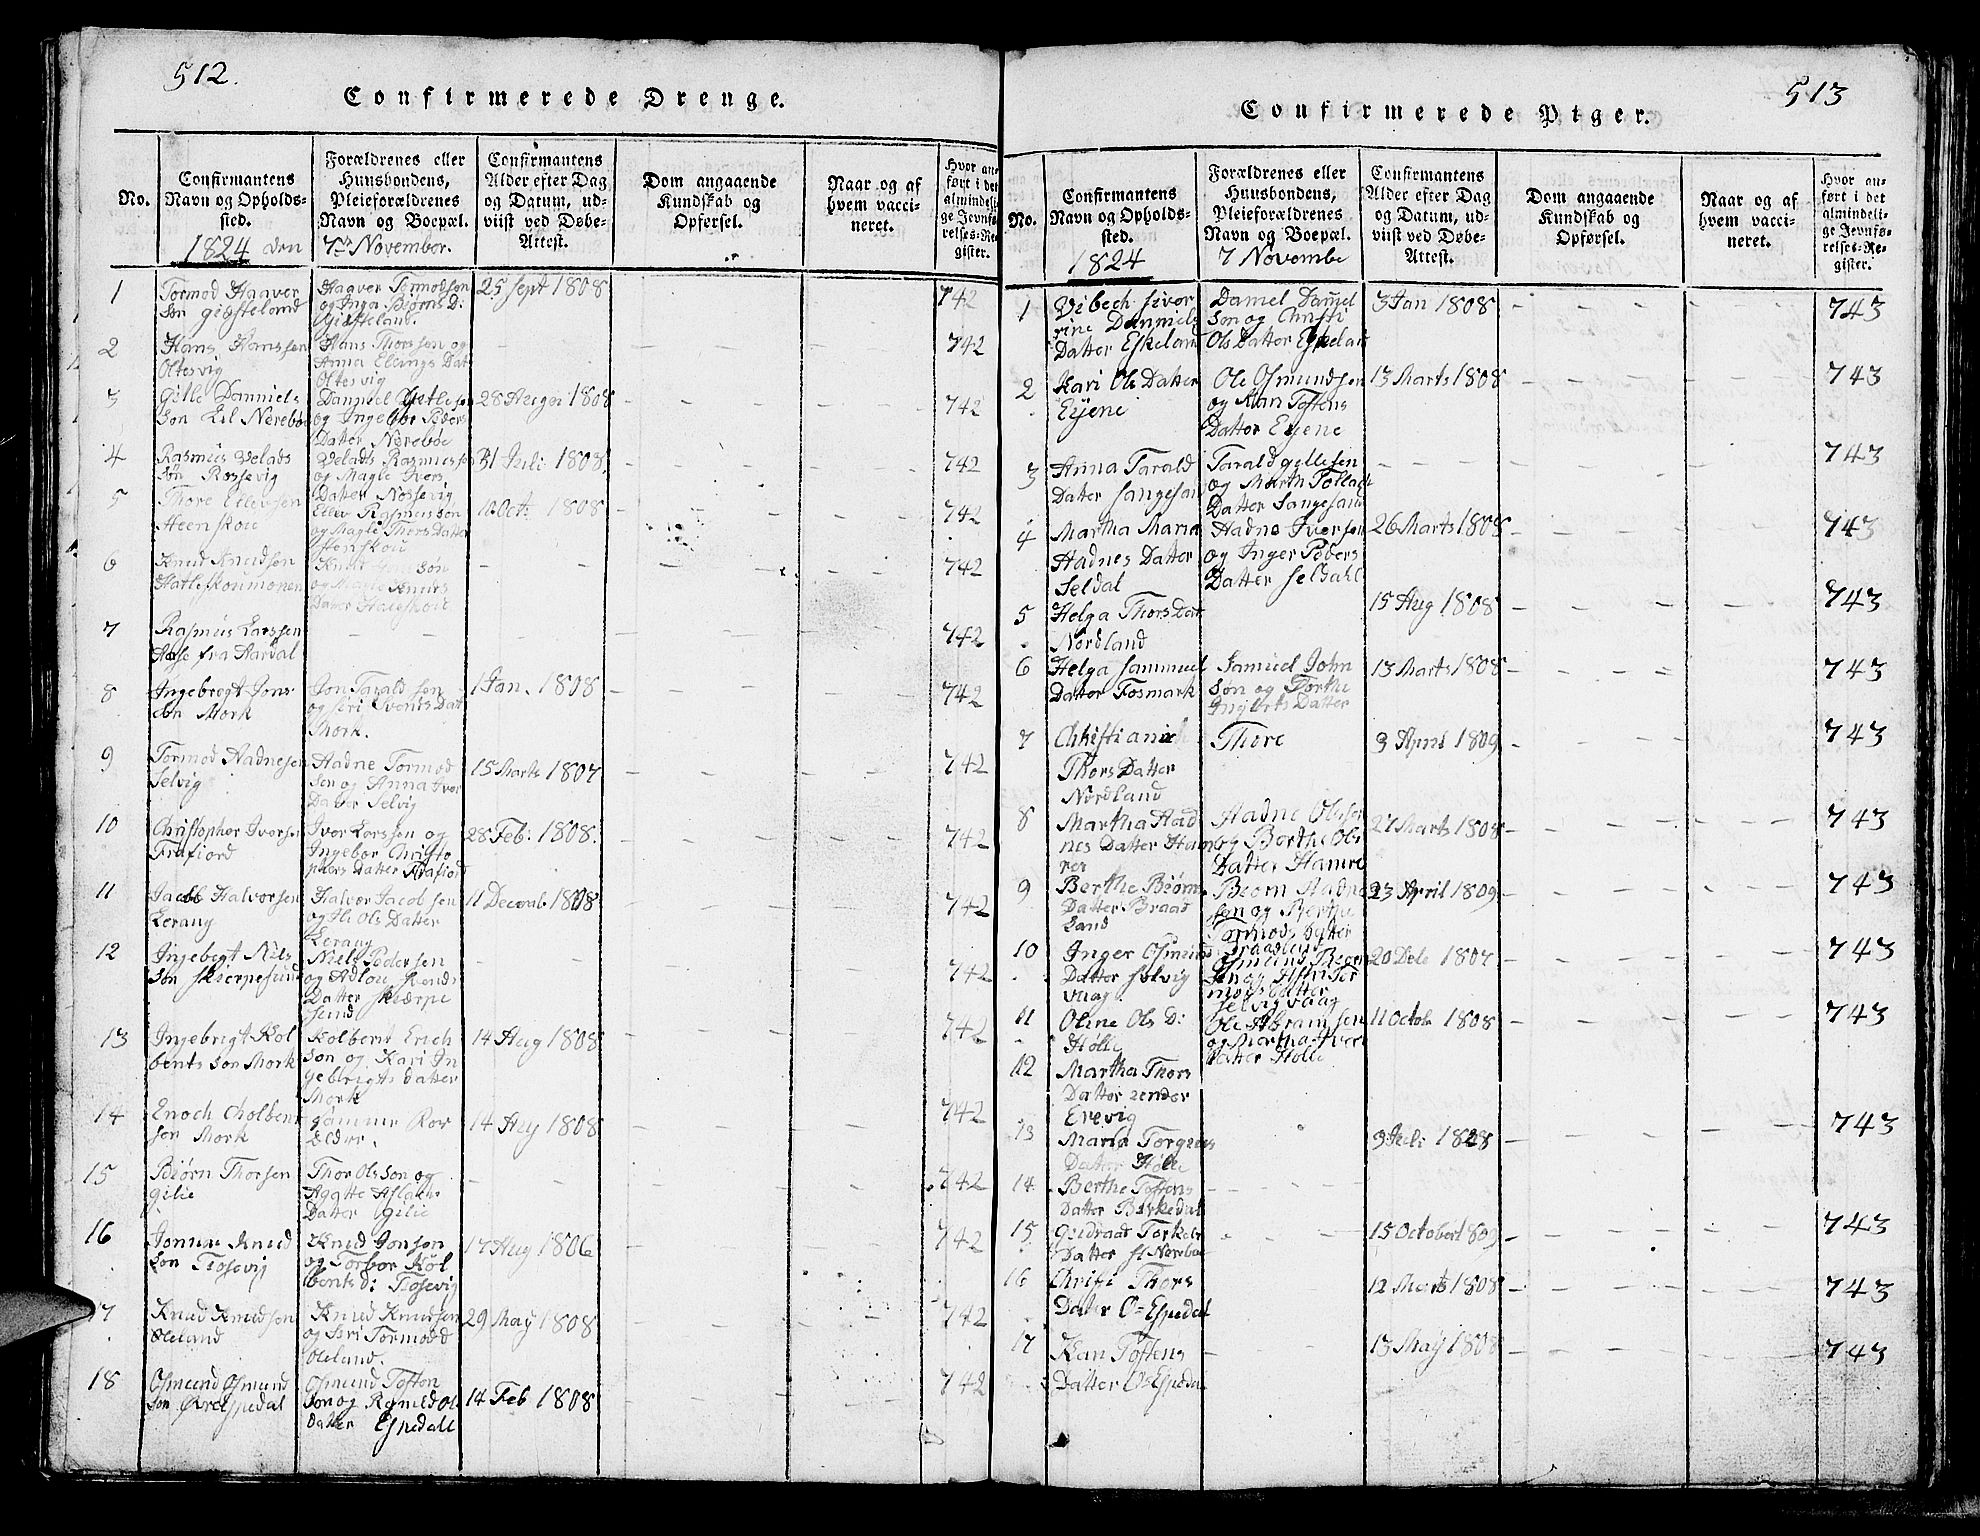 512.
Confirmerede Drenge.
No.
Confirmantens
Navn og Opholds-
sted.
1824 den
Forældrenes eller
Huusbondens,
Pleieforældrenes
Navn og Boepæl.
7de November.
Confirmantens
Alder efter Dag
og Datum, ud-
viist ved Døbe-
Attest.
Dom angaaende
Kundskab og
Opførsel.
Naar og af
hvem vacci-
neret.
Hvor an-
ført i det
almindeli-
ge Jevnfø-
relses-Re-
gister.
1
Tormod Haaver
Søn Giesteland
Haaver Tormodsøn
og Inga Biørns D:
Giesteland.
25 Sept 1808
742
2
Hans Hanssen
Oltesvig
Hans Thorssen og
Anna Elings Dat
Oltesvig
742
3
Gitle Danniels
Søn Lil Nørebøe
Danniel Gitlesen
og Ingebør Peders
Datter Nørebøe
28 August 1808
742
4
Rasmus Velads
Søn Rossevig
Velads Rasmusse
og Magle Ivers
Datter Nossevig
31 Juli 1808.
742
5
Thore Ellevsen
Steenskou
Ellev Rasmussøn
og Magle Thors Datter
Stenskou
10 Oct: 1808
742
6
Knud Knudsen
Hatleskoumonen
742
7
Rasmus Larssen
Aase fra Aardal
742
8
Ingebregt Jons
Søn Mork
Jon Tarald sen
og Siri Svents Dat
Mork.
1 Jan. 1808
742
9
Tormod Aadnesen
Selvig
Aadne Tormod
Søn og Anna Iver
Datter Selvig
15 Marts 1807
742
10
Christopher Iversen
Frafiord
Iver Lorssen og
Ingebor Christo
phers Datter Frafiord
28 Feb: 1808.
742
11
Jacob Halvorsen
Lerang
Halvor Jacobsen
og Ols Datter
Lerang
11 Decemb 1808
742
12
Ingebegt Nils
Søn Skierpesund
Niels Pedersen
og Adlou Knuds
Datter Skiærpe
sund
742
13
Ingebrigt Kol
bents Søn Mork
Kolbent Erich
Søn og Kari In
gebrigts Datter
Mork
14 Aug 1808
742
14
Enoch Cholbent
sen Mork
Samme For
ældre.
14 Aug 1808
742
15
Biørn Thorsen
Gilie
Thor Olsson og
Agatte Aslachs
Datter Gilie
742
16
Knud
Søn Fosevig
Knud Jonsøn
og Torbor Kol
bents D: Fosevig
17 Aug 1806
742
17
Knud Knudsøn
Oleland
Knud Knudsen
og Siri Tormods
Oleland.
29 May 1808
742
18
Osmund Osmund
Søn Øvre Espedal
Osmund Toften
Søn og Ragnild Ols
Datter Espedall
14 Feb 1808
742
513
Confirmerede Piger.
No.
Confirmantens
Navn og Opholds-
sted.
1824
Forældrenes eller
Huusbondens,
Pleieforældrenes
Navn og Boepæl.
7 Novembe
Confirmantens
Alder efter Dag
og Datum, ud-
viist ved Døbe-
Attest.
Dom angaaende
Kundskab og
Opførsel.
Naar og af
hvem vacci-
neret.
Hvor an-
ført i det
almindeli-
ge Jevnfø-
relses-Re-
gister.
1
Vibech Sivor
rine Danniels
Datter Eskeland
Daniel Daniel
Søn og Christi
Ols Datter Eskeland
3 Jan 1808
743
2
Kari Ols Datter
Eyene
Ole Osmundsen
og Kari Toftens
Datter Eyene
13 Marts 1808
743
3
Anna Tarald
Datter Sangesand
Tarald Gellesen
og Marth Tollach
Datter Sangesand
743
4
Martha Maria
Hadnes Datter
Seldal
Hadne Iversen
og Inger Peders
Datter Seldahl
26 Marts 1808
743
5
Helga Thors Dat
Nordland
15 Aug 1808
743
6
Helga Sammuel
Datter Fosmark
Samuel John
Søn og Torthe
Datter
13 Marts 1808
743
7
Christianie
Thors Datter
Nordland
Thore
9 April 1809
743
8
Martha Aad
nes Datter Ham
rer
Aadne Olssen
og Berthe Ols
Datter Hamre
27 Marts 1808
743
9
Berthe Biørn
Datter Braad
land
Biørn Aadne
søn og Berthe
Tormods Datter
Braadland
23 April 1809
743
10
Inger Osmund
Datter Selvig
vaag
Osmund
Søn og Tor
mods Datter
Selvigvaag
20 Dec 1807
743
11
Oline Ols D:
Hølle
Ole Abramsen
og Martha Iver
Datter Hølle
11 Octob 1808
743
12
Martha Thors
Datter
Erevig
13
Maria Torgeirs
Datter Hølle
9 Juli 1808
743
14
Berthe Toftens
Datter Birkedal
15
Gudraad Torkels
Datter Nørebø
15 October 1809
743
16
Christi Thors
Datter O=Espedal
12 Marts 1808
743
17
Kari Toftens
Datter O=Espedal
13 May 1808
743